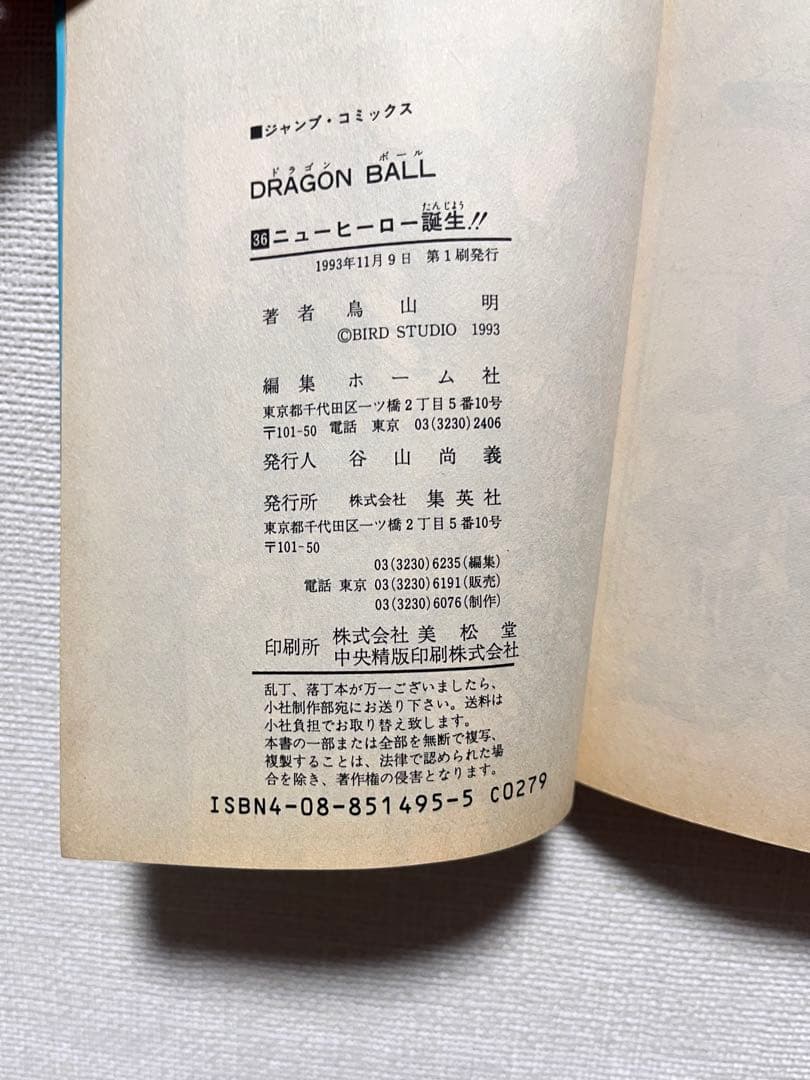 ■ジャンプ・コミックス
ドラゴン ボール
DRAGON BALL
たんじょう
36ニューヒーロー誕生!!
1993年11月9日 第1刷発行
著者 鳥山 明
©BIRD STUDIO 1993
編集 ホーム社
東京都千代田区一ツ橋2丁目5番10号
〒101-50 電話 東京 03(3230)2406
発行人 谷山尚義
発行所 株式会社 集英社
東京都千代田区一ツ橋2丁目5番10号
〒101-50
03(3230)6235(編集)
電話 東京 03(3230)6191(販売)
03(3230)6076(制作)
印刷所 株式会社 美松堂
中央精版印刷株式会社
乱丁、落丁本が万一ございましたら、
小社制作部宛にお送り下さい。送料は
小社負担でお取り替え致します。
本書の一部または全部を無断で複写、
複製することは、法律で認められた場
合を除き、著作権の侵害となります。
ISBN4-08-851495-5 C0279